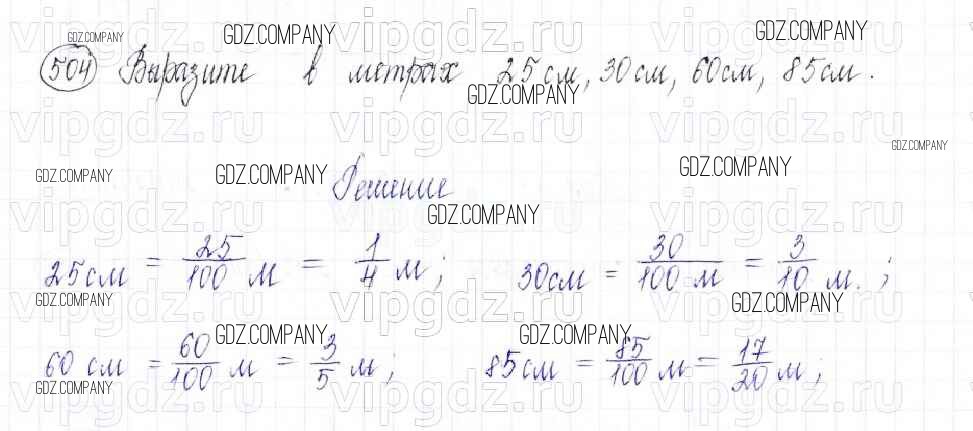 GDZ.COMPANY GDZ.COMPANY GDZ.COMPANY
vipgdz.ru vipgdz.ru vipgdz.ru
504 Выразите в метрах 25 см, 30 см, 60 см, 85 см.
GDZ.COMPANY
vipgdz.ru vipgdz.ru vipgdz.ru
GDZ.COMPANY
GDZ.COMPANY GDZ.COMPANY Решение GDZ.COMPANY
vipgdz.ru vipgdz.ru vipgdz.ru
GDZ.COMPANY
25 см = 25/100 м = 1/4 м; 30 см = 30/100 м = 3/10 м.;
GDZ.COMPANY GDZ.COMPANY
vipgdz.ru vipgdz.ru vipgdz.ru
GDZ.COMPANY GDZ.COMPANY
60 см = 60/100 м = 3/5 м; 85 см = 85/100 м = 17/20 м;
GDZ.COMPANY
vipgdz.ru vipgdz.ru vipgdz.ru